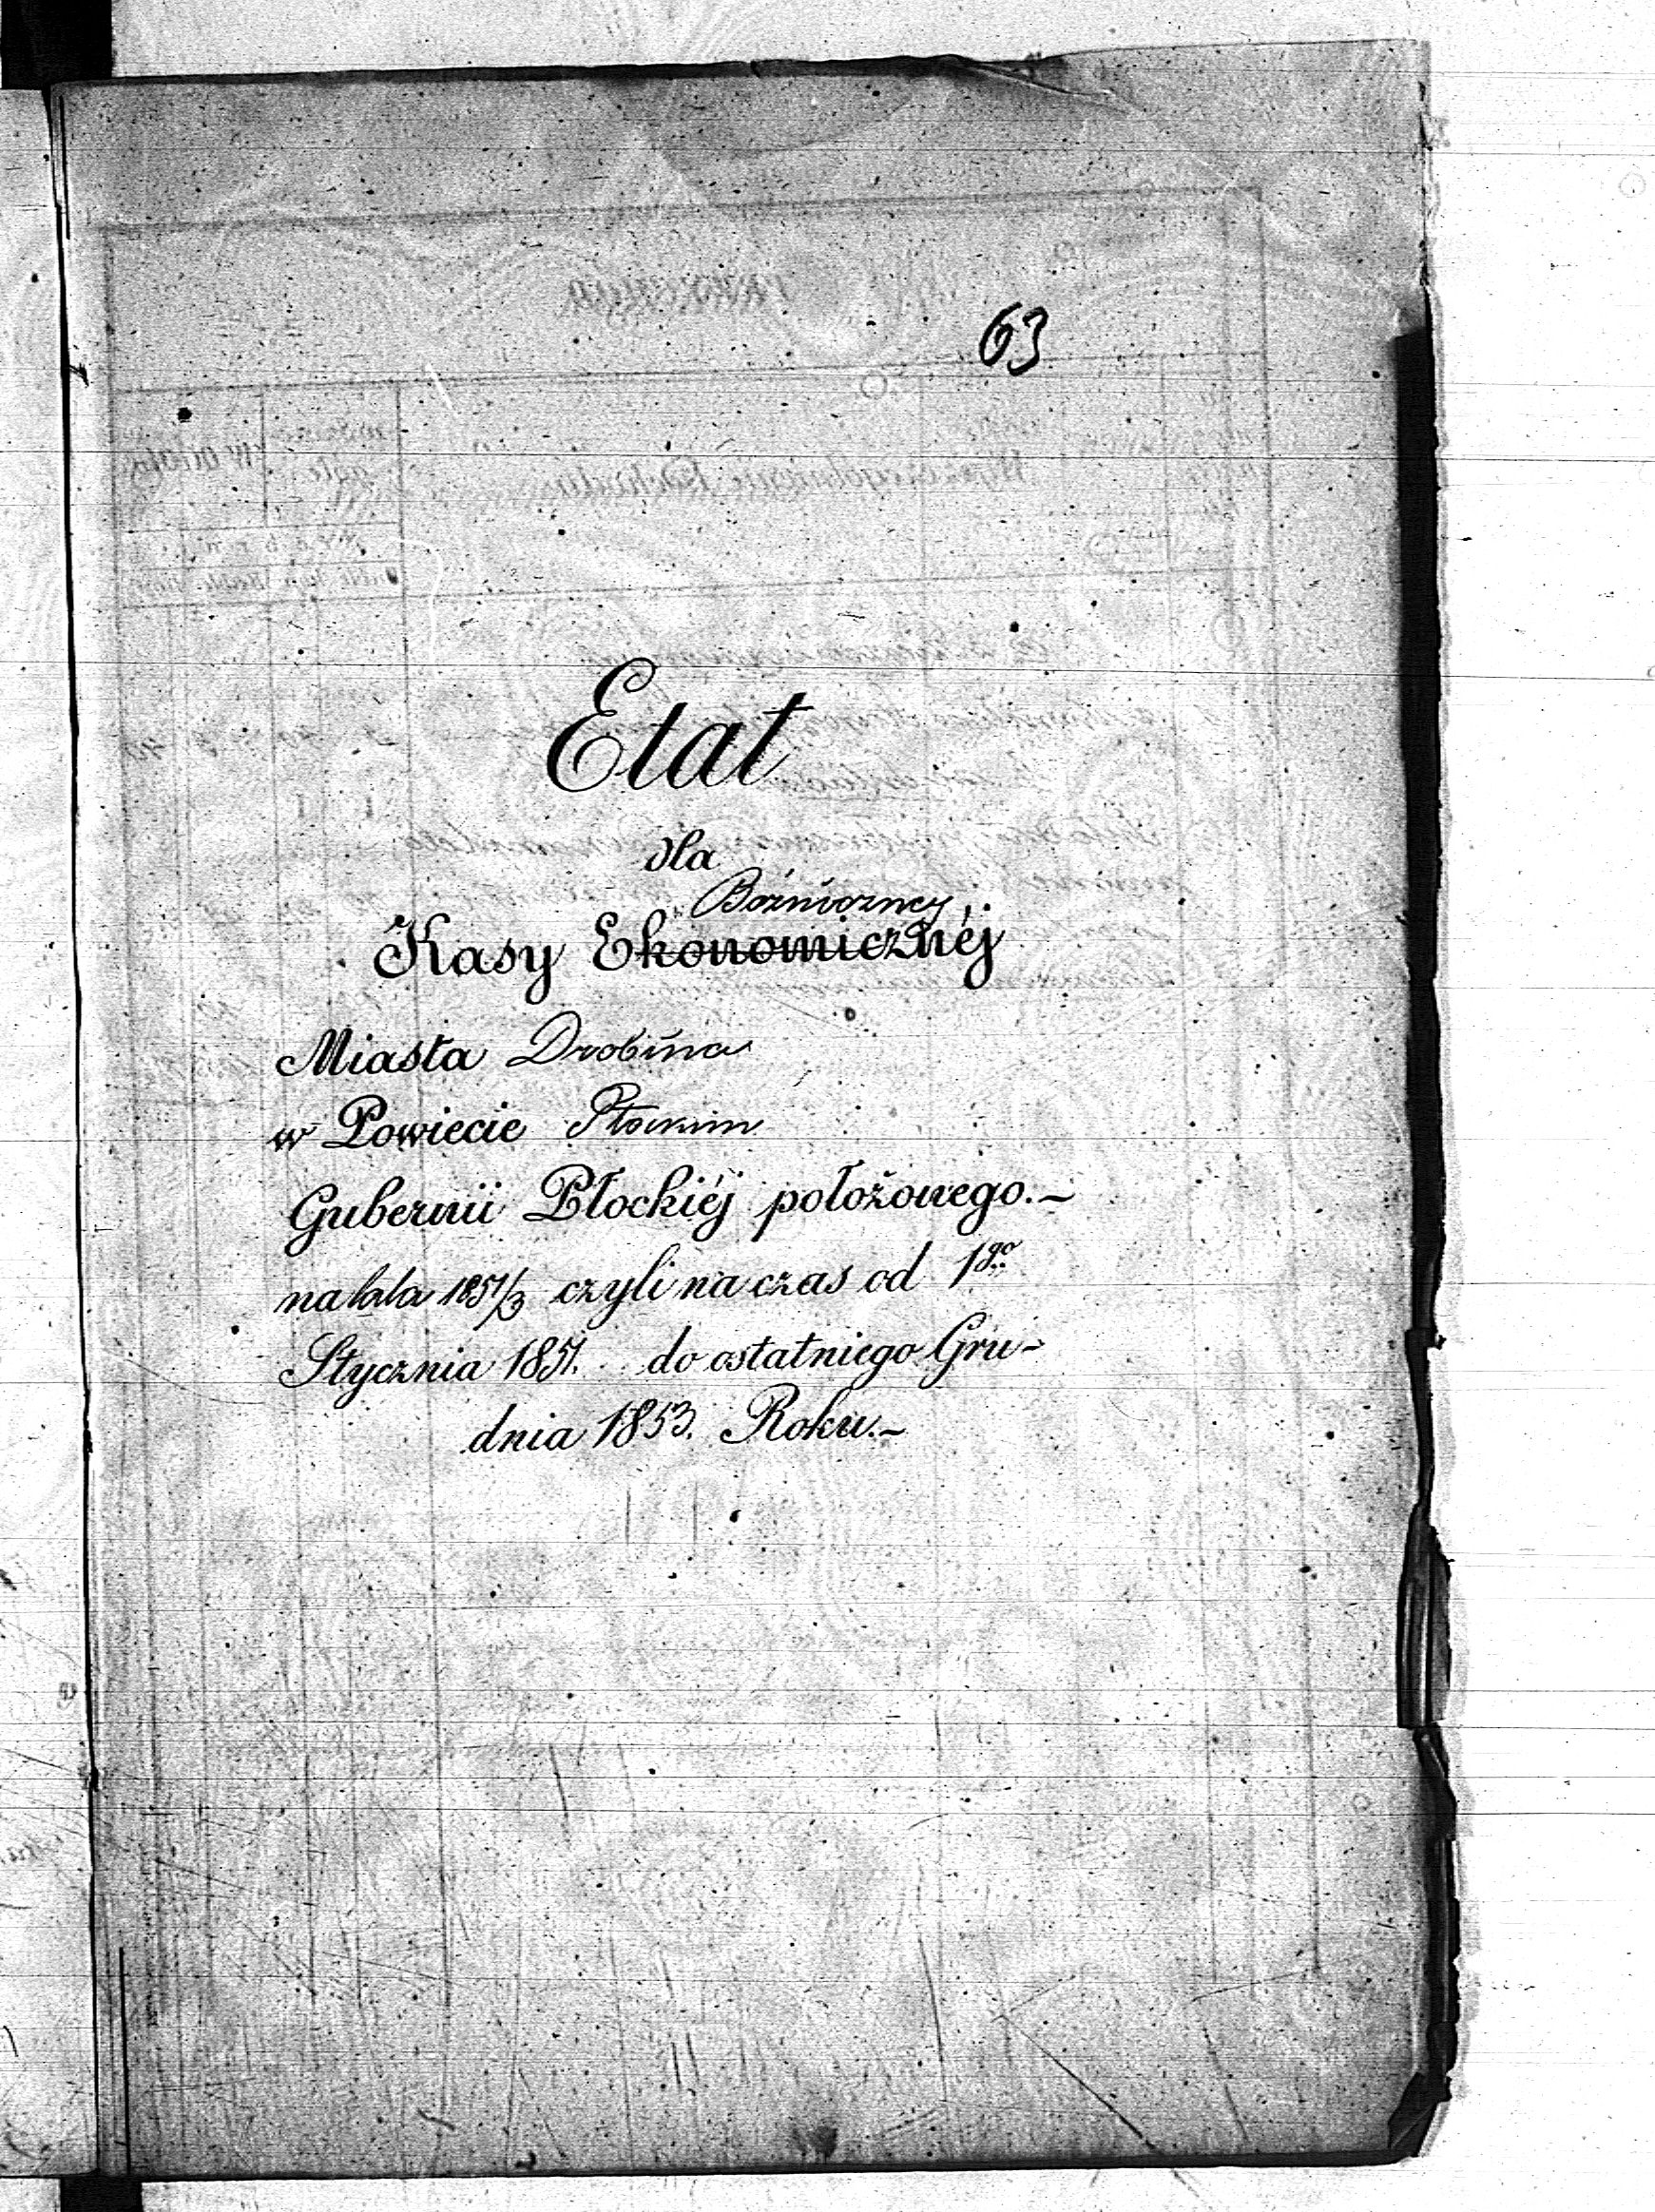 63
Etat
dla
Bożniczney
Kasy Ekonomicznéj
Miasta Drobina
w Powiecie Płockim
Gubernii Płockiéj położonego.~
na lata 1851/3 czyli na czas od 1go
Stycznia 1851. do ostatniego Gru-
dnia 1853. Roku.~